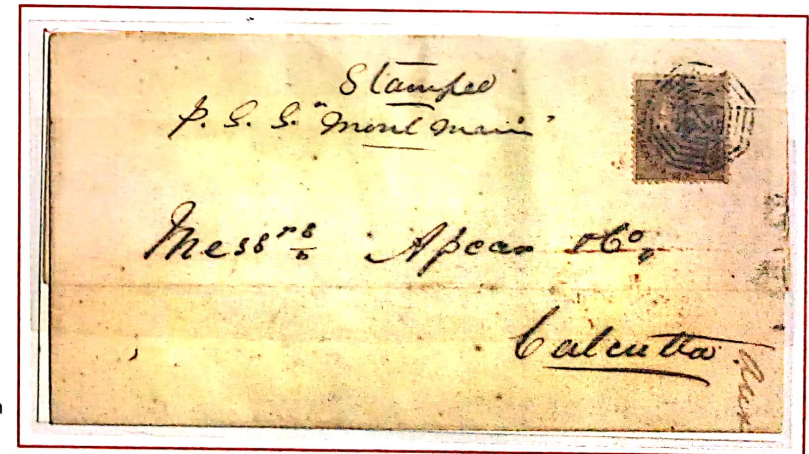 Stamped
p. S. S. "Moulmein"
Messrs Apcar & Co,
Calcutta